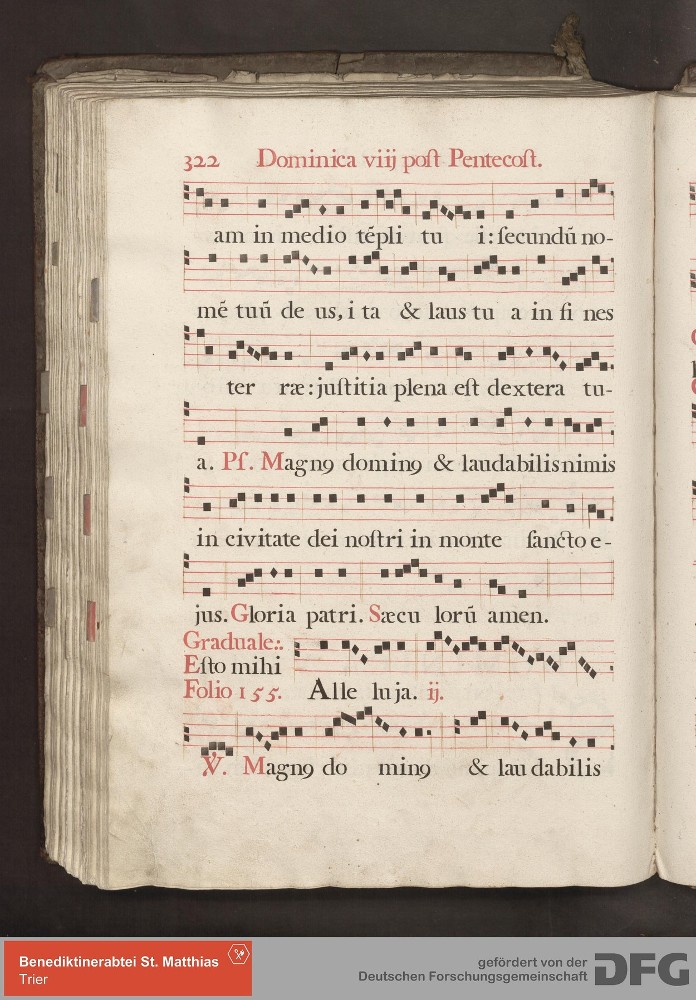 322 Dominica viij poſt Pentecoſt.
am in medio tẽpli tu i: ſecundũ no-
mẽ tuũ de us, i ta & laus tu a in fi nes
ter ræ: juſtitia plena eſt dextera tu-
a. Pſ. Magnꝯ dominꝯ & laudabilis nimis
in civitate dei noſtri in monte ſancto e-
jus. Gloria patri. Sæcu lorũ amen.
Graduale:.
Eſto mihi
Folio 155. Alle luja. ij.
℣. Magnꝯ do minꝯ & lau dabilis
Benediktinerabtei St. Matthias
Trier
gefördert von der
Deutschen Forschungsgemeinschaft DFG